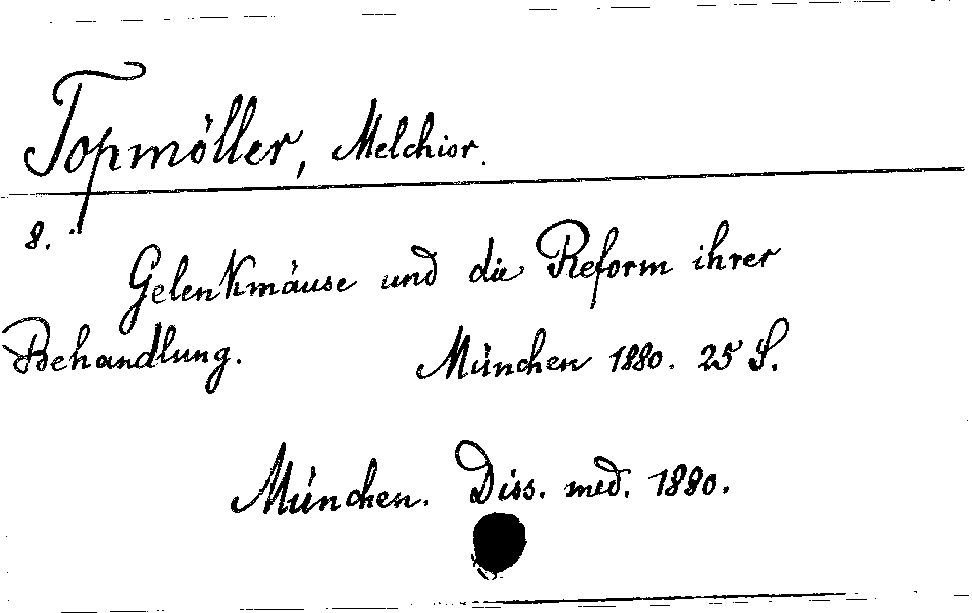 Topmöller, Melchior.
8.
Gelenkmäuse und die Reform ihrer
Behandlung. München 1880. 25 S.
München. Diss. med. 1880.